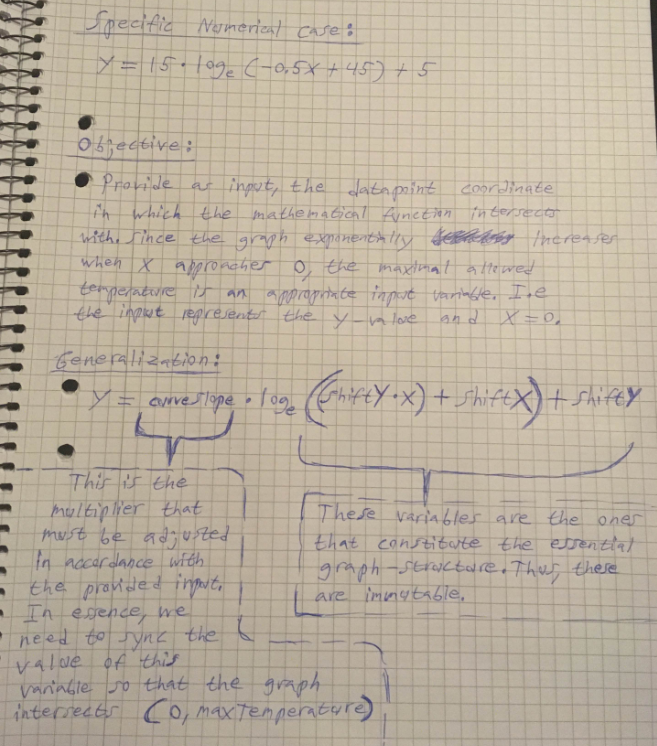 Specific Numerical case:
Y = 15 · logₑ (-0.5X + 45) + 5
Objective:
Provide as input, the datapoint coordinate
in which the mathematical function intersects
with. Since the graph exponentially increases
when X approaches 0, the maximal allowed
temperature is an appropriate input variable. I.e
the input represents the Y-value and X=0.
Generalization:
Y = curveslope · logₑ ((shiftY·X) + shiftX) + shiftY
This is the
multiplier that
must be adjusted
in accordance with
the provided input.
In essence, we
need to sync the
value of this
variable so that the graph
intersects (0, maxTemperature)
These variables are the ones
that constitute the essential
graph-structure. Thus, these
are immutable.